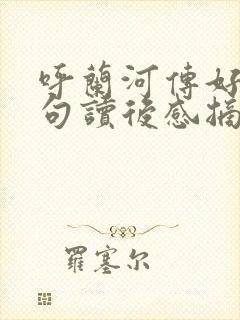 呼蘭河傳好
句讀後感摘
羅塞尔